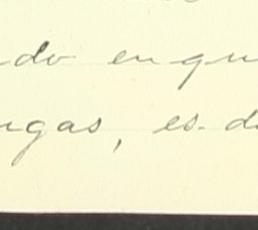 do en qu
gas, es d